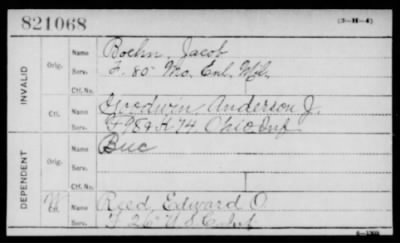 821068
(3-H-4)
INVALID
Orig.
Name Boehn, Jacob
Serv. F. 80 Mo. Enl. Mil.
Ctf. No.
Ctf.
Name Goodwin, Anderson J.
Serv. 74 Ohio Inf
Ctf. No.
DEPENDENT
Orig.
Name Buc
Serv.
Ctf. No.
Ctf.
Name Reed, Edward O
Serv. 26 U S C Inf